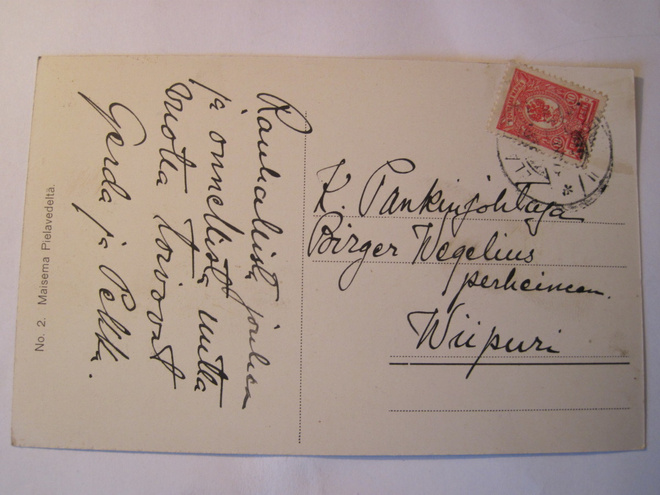 Rauhallista joulua
ja onnellista uutta
vuotta toivovat
Gerda ja Pekka.
K. Pankinjohtaja
Birger Wegelius
perheineen.
Wiipuri
No. 2. Maisema Pielavedeltä.